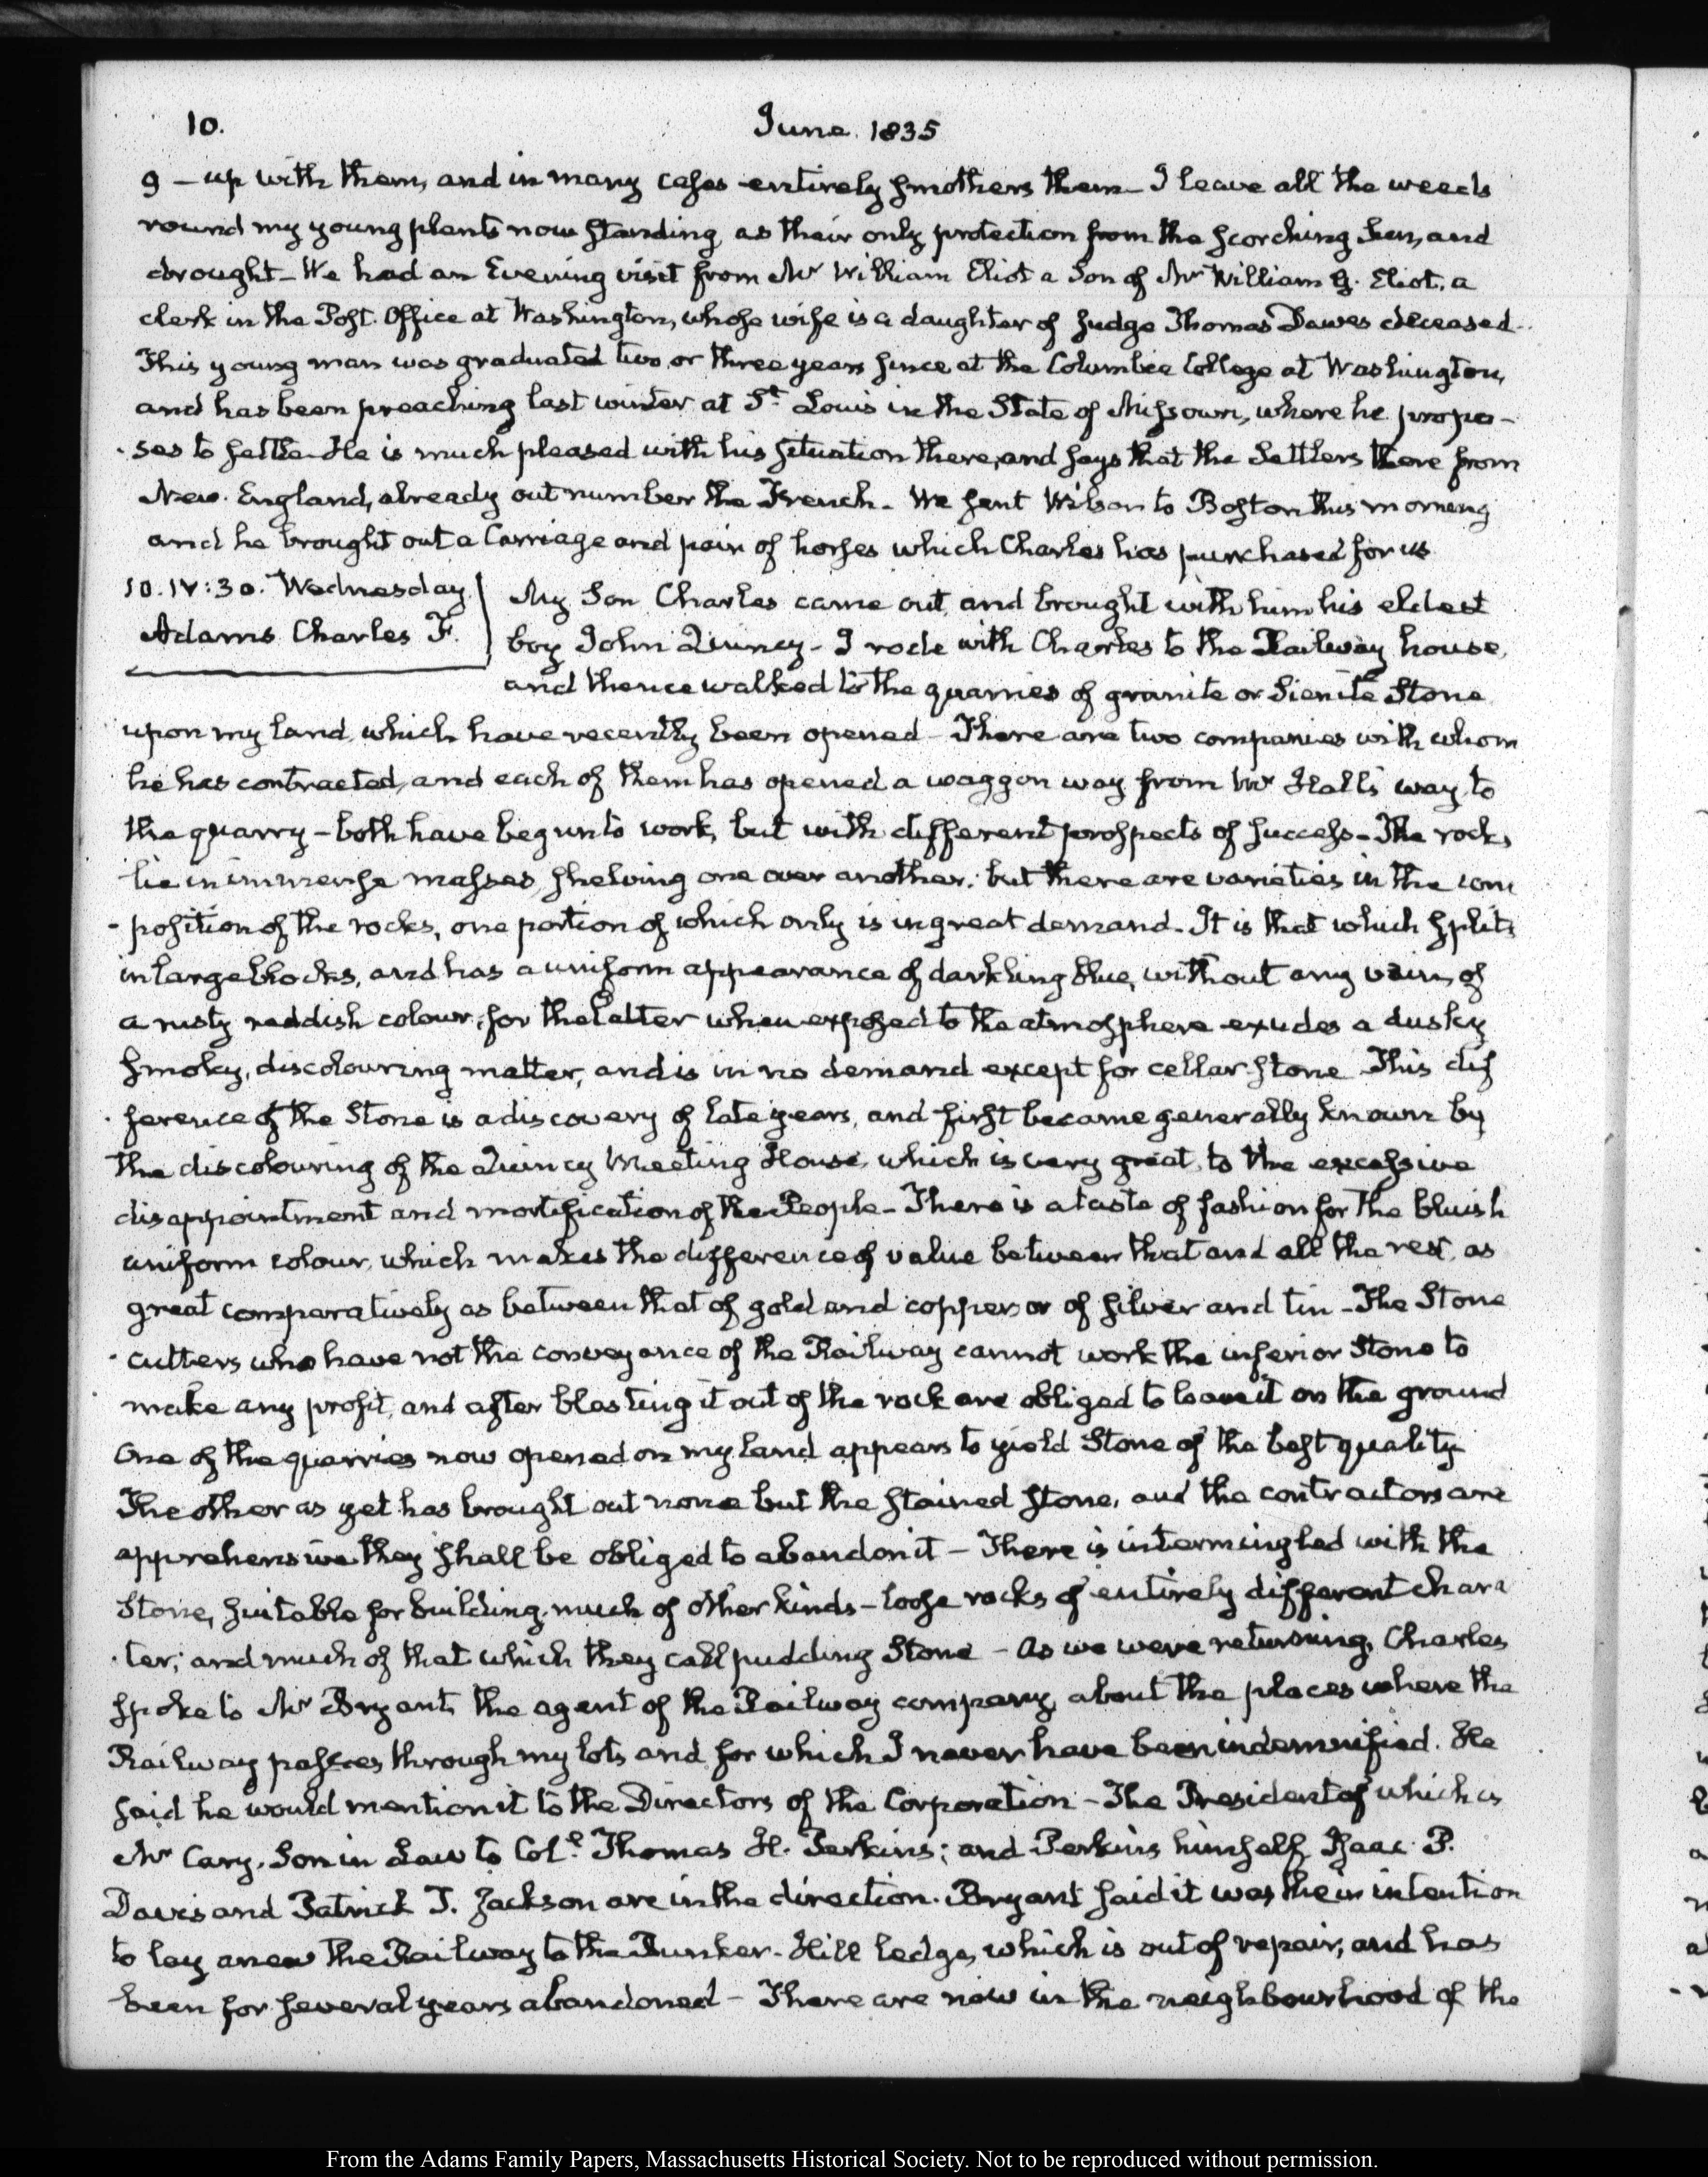 10.
June. 1835
9 — up with them, and in many cases entirely smothers them — I leave all the weeds
round my young plants now standing, as their only protection from the scorching Sun, and
drought — We had an Evening visit from Mr William Eliot a Son of Mr William G. Eliot, a
clerk in the Post. Office at Washington, whose wife is a daughter of Judge Thomas Dawes deceased.
This young man was graduated two or three years since at the Columbia College at Washington,
and has been preaching last winter at St. Louis in the State of Missouri, where he propo-
ses to settle. He is much pleased with his situation there, and says that the Settlers there from
New. England, already outnumber the French. We sent Wilson to Boston this morning
and he brought out a Carriage and pair of horses which Charles has purchased for us
10. IV:30. Wednesday
Adams Charles F.
My Son Charles came out, and brought with him his eldest
boy John Quincy — I rode with Charles to the Railway house,
and thence walked to the quarries of granite or Sienite Stone
upon my land, which have recently been opened — There are two companies with whom
he has contracted, and each of them has opened a waggon way from Mr Hall's way to
the quarry — both have begun to work, but with different prospects of success — The rocks
lie in immense masses, shelving one over another: but there are varieties in the com
position of the rocks, one portion of which only is in great demand. It is that which splits
in large blocks, and has a uniform appearance of darkling blue, without any veins of
a rusty reddish colour, for the latter when exposed to the atmosphere exudes a dusky
smoky, discolouring matter, and is in no demand except for cellar stone This dif
ference of the Stone is a discovery of late years, and first became generally known by
the discolouring of the Quincy Meeting House, which is very great, to the excessive
disappointment and mortification of the People — There is a taste of fashion for the bluish
uniform colour, which makes the difference of value between that and all the rest, as
great comparatively as between that of gold and copper, or of silver and tin — The Stone
cutters who have not the conveyance of the Railway cannot work the inferior Stone to
make any profit, and after blasting it out of the rock are obliged to leave it on the ground
One of the quarries now opened on my land appears to yield Stone of the best quality
The other as yet has brought out none but the stained stone, and the contractors are
apprehensive they shall be obliged to abandon it — There is intermingled with the
Stone, suitable for building, much of other kinds — loose rocks of entirely different chara
ter; and much of that which they call pudding Stone — As we were returning, Charles
spoke to Mr Bryant, the agent of the Railway company, about the places where the
Railway passes through my lots, and for which I never have been indemnified. He
said he would mention it to the Directors of the Corporation — The President of which is
Mr Cary. Son in Law to Coll. Thomas H. Perkins; and Perkins himself, Isaac P.
Davis and Patrick T. Jackson are in the direction. Bryant said it was their intention
to lay anew the Railway to the Bunker-Hill ledge, which is out of repair, and has
been for several years abandoned — There are now in the neighbourhood of the
From the Adams Family Papers, Massachusetts Historical Society. Not to be reproduced without permission.